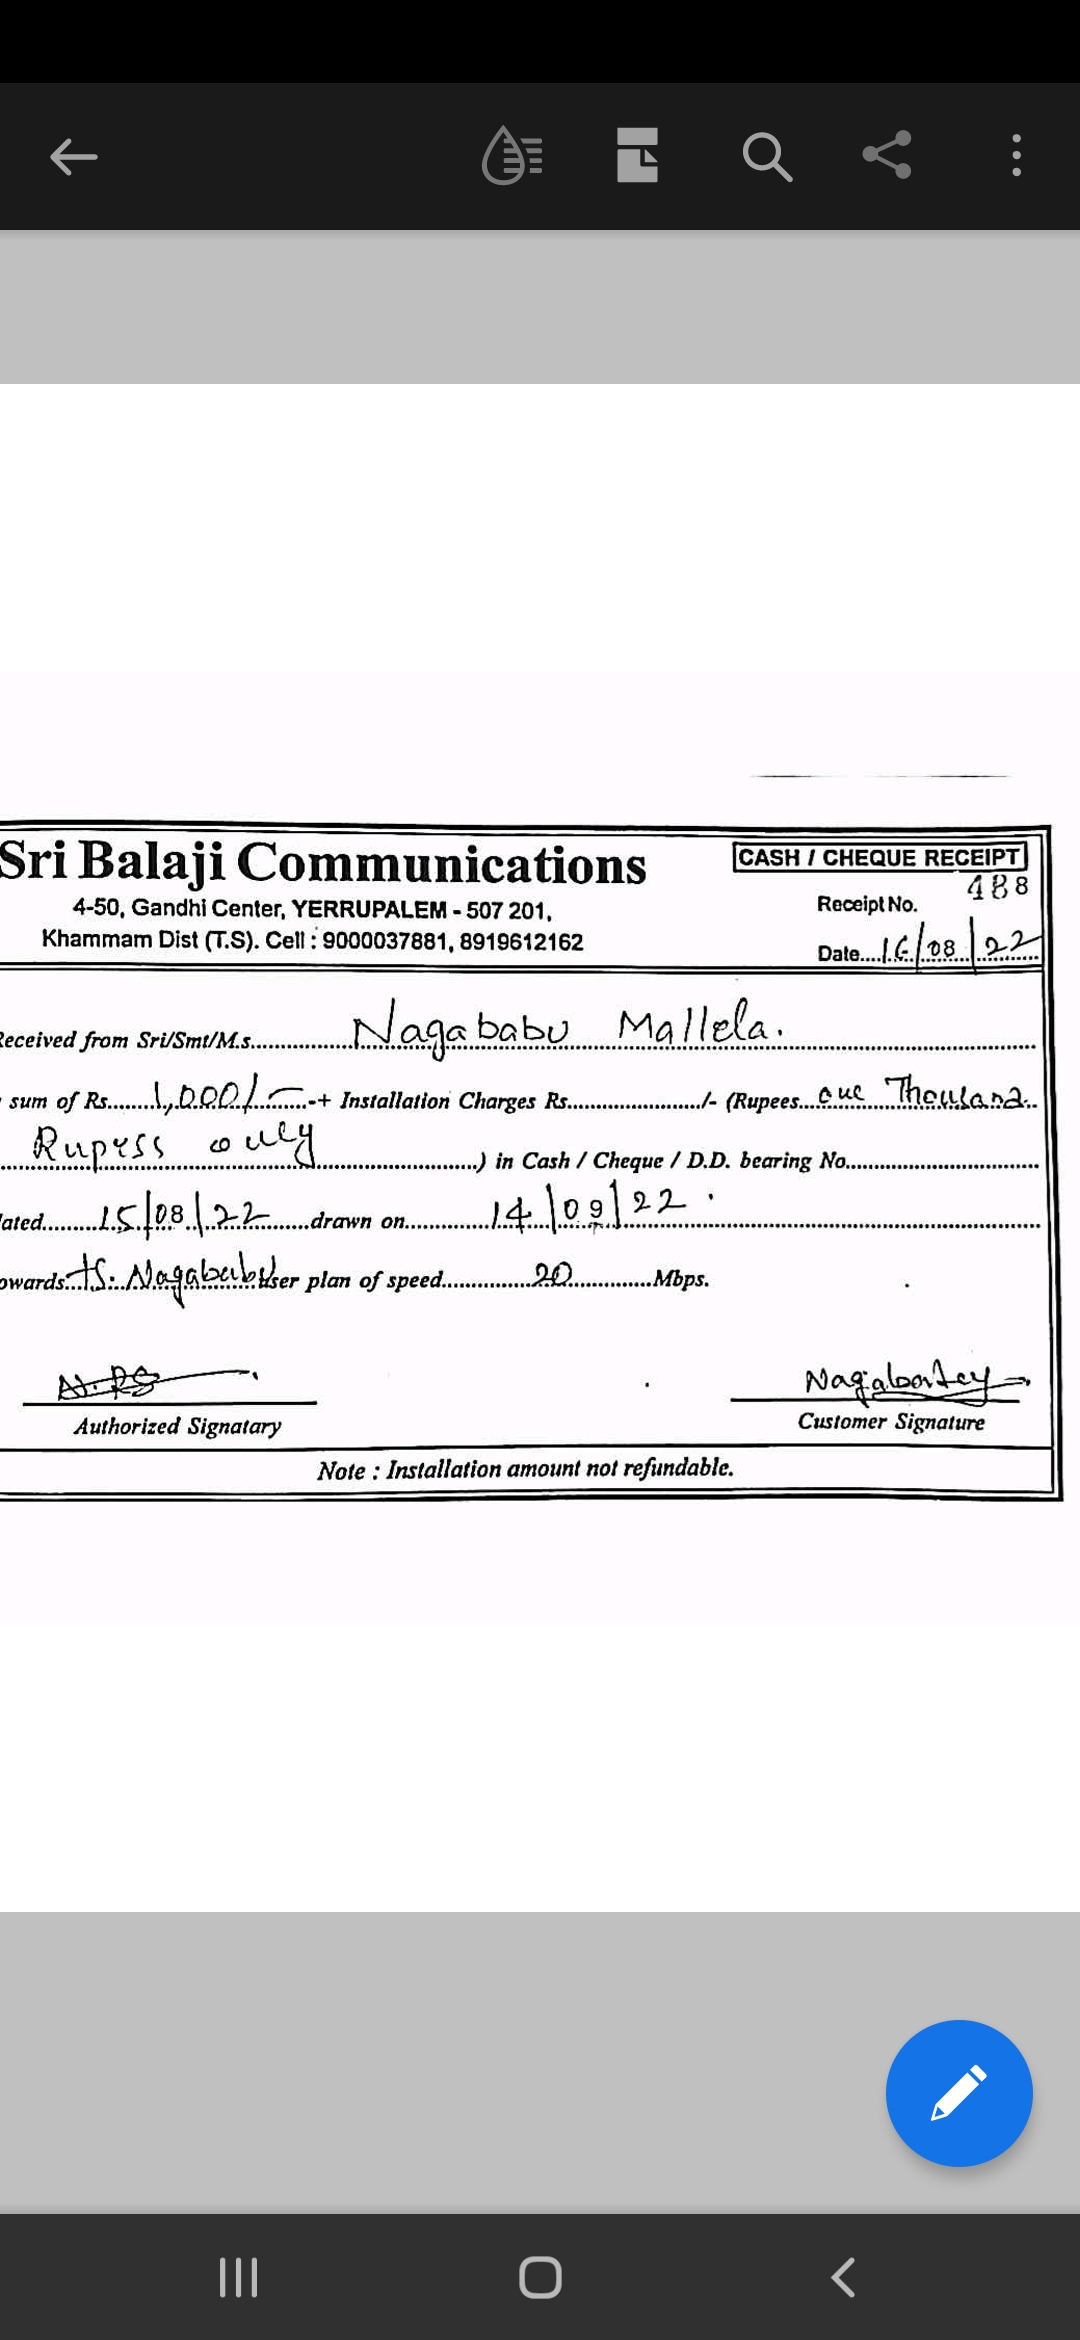 Sri Balaji Communications
CASH / CHEQUE RECEIPT
4-50, Gandhi Center, YERRUPALEM - 507 201,
Receipt No. 488
Khammam Dist (T.S). Cell : 9000037881, 8919612162
Date....16/08/22
Received from Sri/Smt/M.s............Nagababu Mallela.
sum of Rs.......1,000/-......-+ Installation Charges Rs......................./- (Rupees...one Thousand..
Rupess only........................) in Cash / Cheque / D.D. bearing No.................................
dated........15/08/22......drawn on............14/09/22.
owards....Nagababu user plan of speed..............20............Mbps.
Authorized Signatary
Customer Signature
Note : Installation amount not refundable.